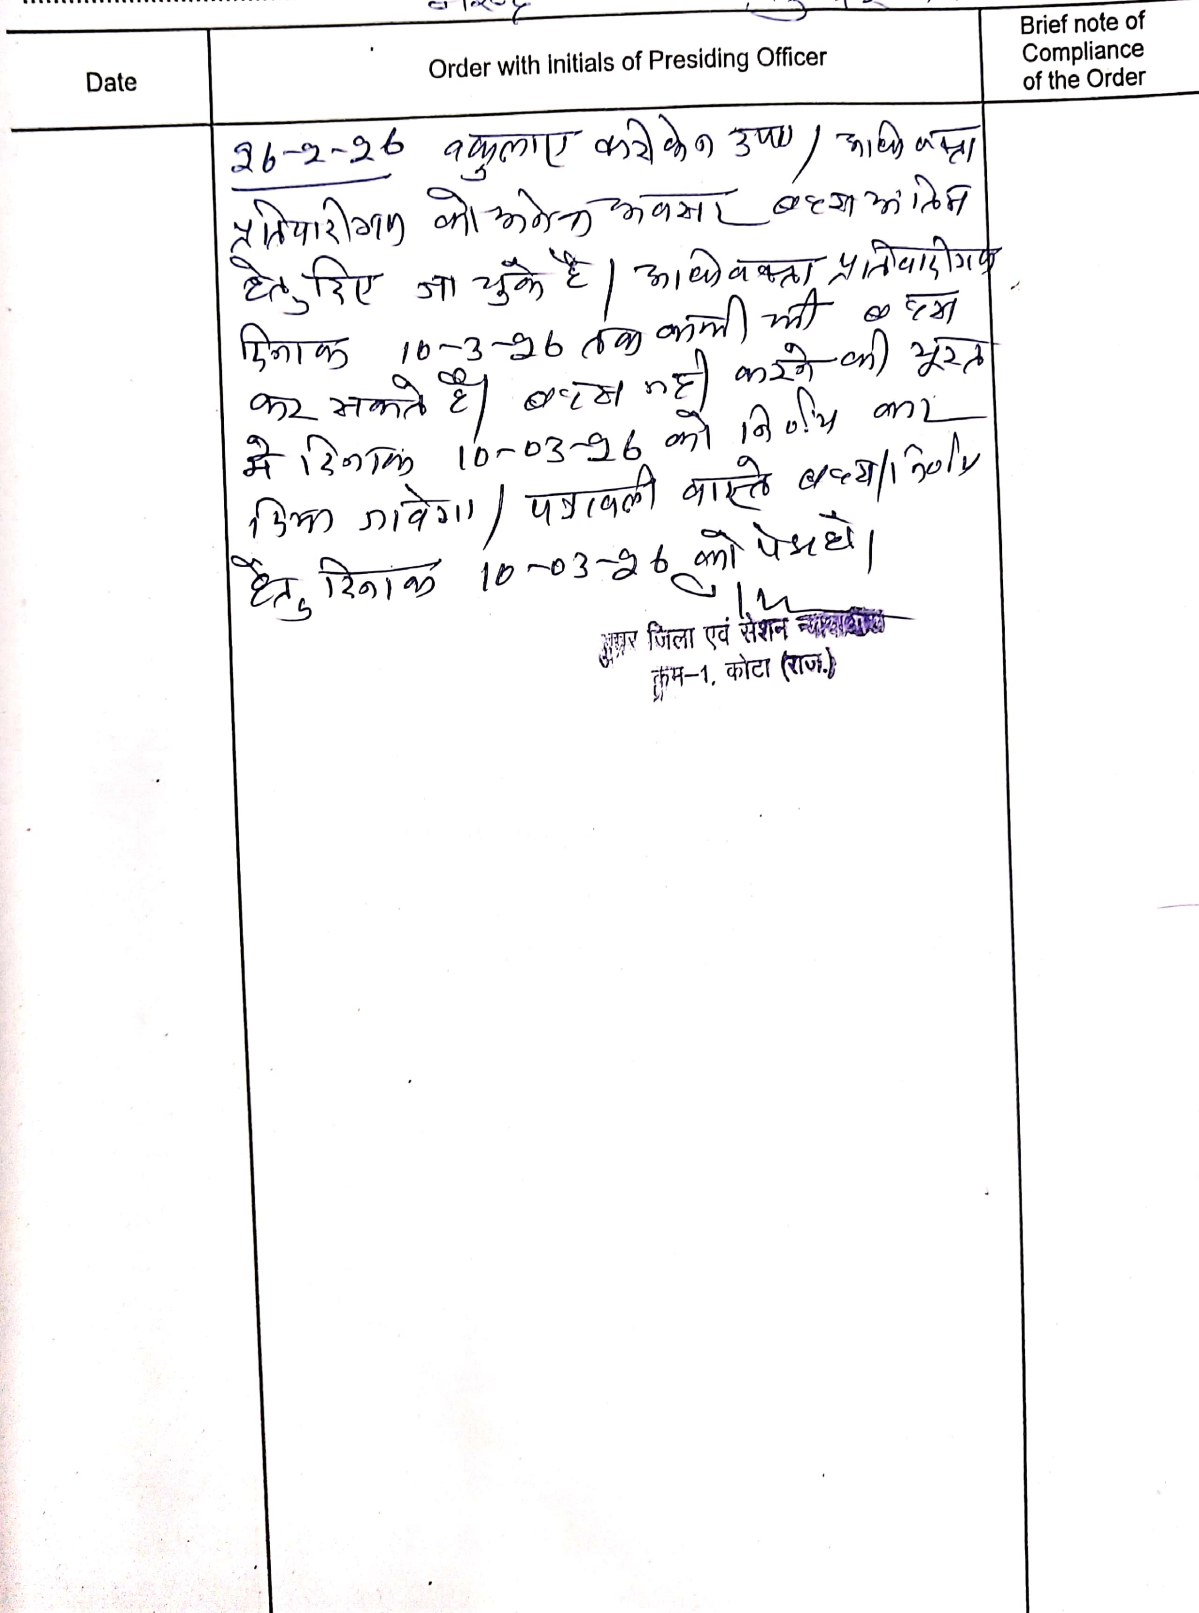 Date
Order with initials of Presiding Officer
Brief note of
Compliance
of the Order
26-2-26 वकुलाए फरीकेन उप० / अधिवक्ता
प्रतिवादीगण को अनेक अवसर बहस अंतिम
हेतु दिए जा चुके है / अधिवक्ता प्रतिवादीगण
दिनांक 10-3-26 तक कभी भी बहस
कर सकते है / बहस नही करने की सूरत
मे दिनांक 10-03-26 को निर्णय कर
दिया जावेगा / पत्रावली वास्ते बहस/निर्णय
हेतु दिनांक 10-03-26 को पेश हो।
अपर जिला एवं सेशन न्यायाधीश
क्रम-1, कोटा (राज.)